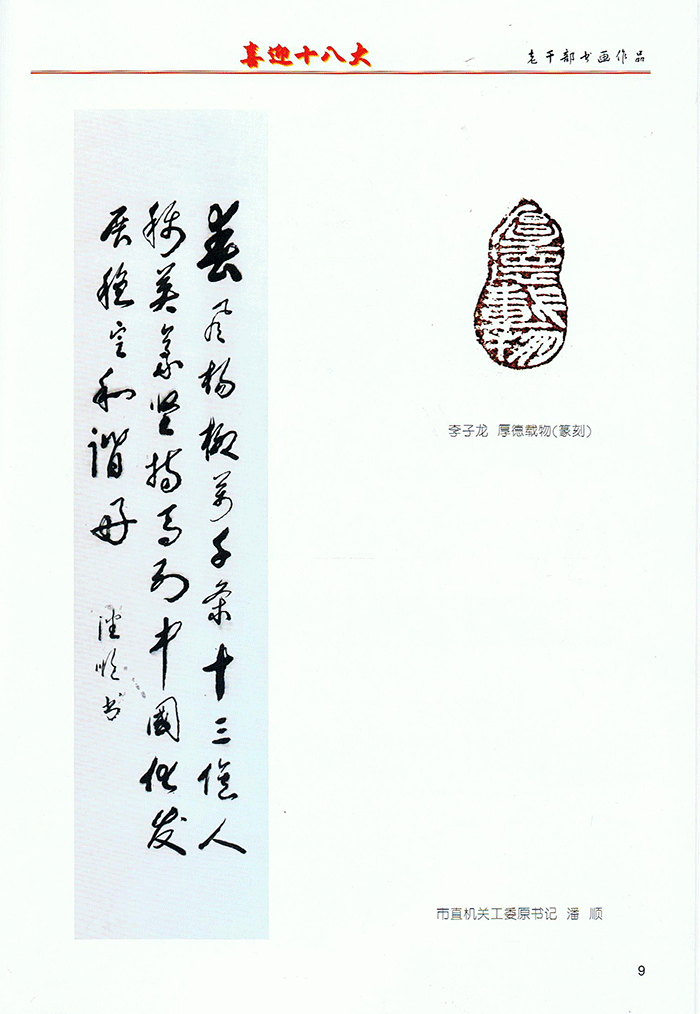 喜迎十八大
老干部书画作品
春风杨柳万千条十三億人
称英豪坚持马列中國化发
展稳定和谐好
潘顺书
厚德載物
李子龙 厚德载物(篆刻)
市直机关工委原书记 潘 顺
9